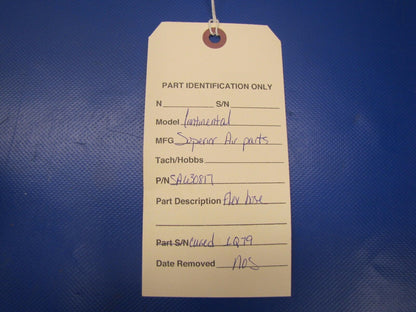 PART IDENTIFICATION ONLY
N S/N
Model Continental
MFG Superior Air parts
Tach/Hobbs
P/N SA630817
Part Description Flex hose
Part S/N cured 4Q79
Date Removed NOS